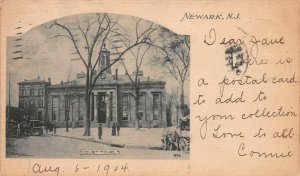 NEWARK, N.J.
Dear Jane
Here is
a postal card
to add to
your collection
Love to all.
Connie
Court House.
Aug. 6 - 1904